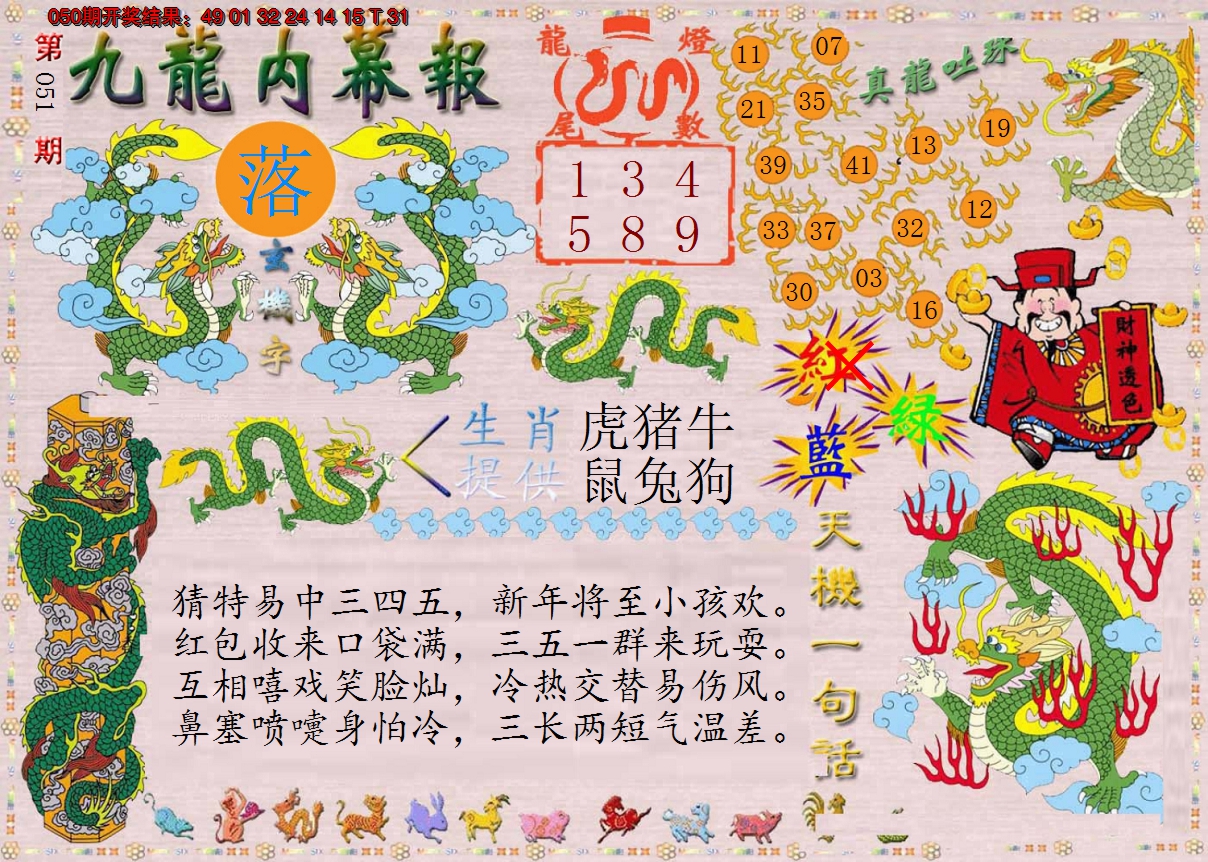 050期开奖结果：49 01 32 24 14 15 T 31
第051期
九龍内幕報
落
玄機字
龍燈尾數
1 3 4
5 8 9
真龍吐珠
11 07
21 35
39 41 13 19
33 37 32 12
30 03 16
財神透色
紅
绿
藍
生肖提供
虎猪牛
鼠兔狗
天機一句話
猜特易中三四五，新年将至小孩欢。
红包收来口袋满，三五一群来玩耍。
互相嘻戏笑脸灿，冷热交替易伤风。
鼻塞喷嚏身怕冷，三长两短气温差。